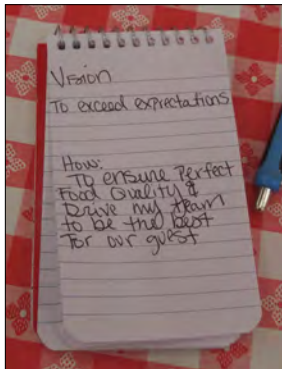 Vision
To exceed expectations
How:
To ensure Perfect
Food Quality &
Drive my team
to be the best
for our guest